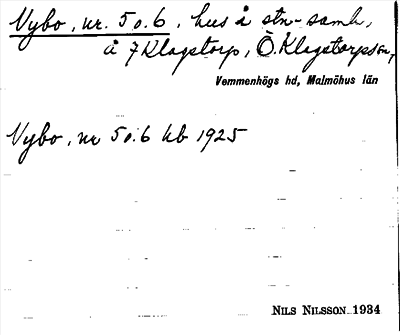 Nybo, nr. 5 o. 6, hus å stn-samh,
å 7 Klagstorp, Ö. Klagstorpssn,
Vemmenhögs hd, Malmöhus län
Nybo, nr 5 o. 6 kb 1925
NILS NILSSON 1934